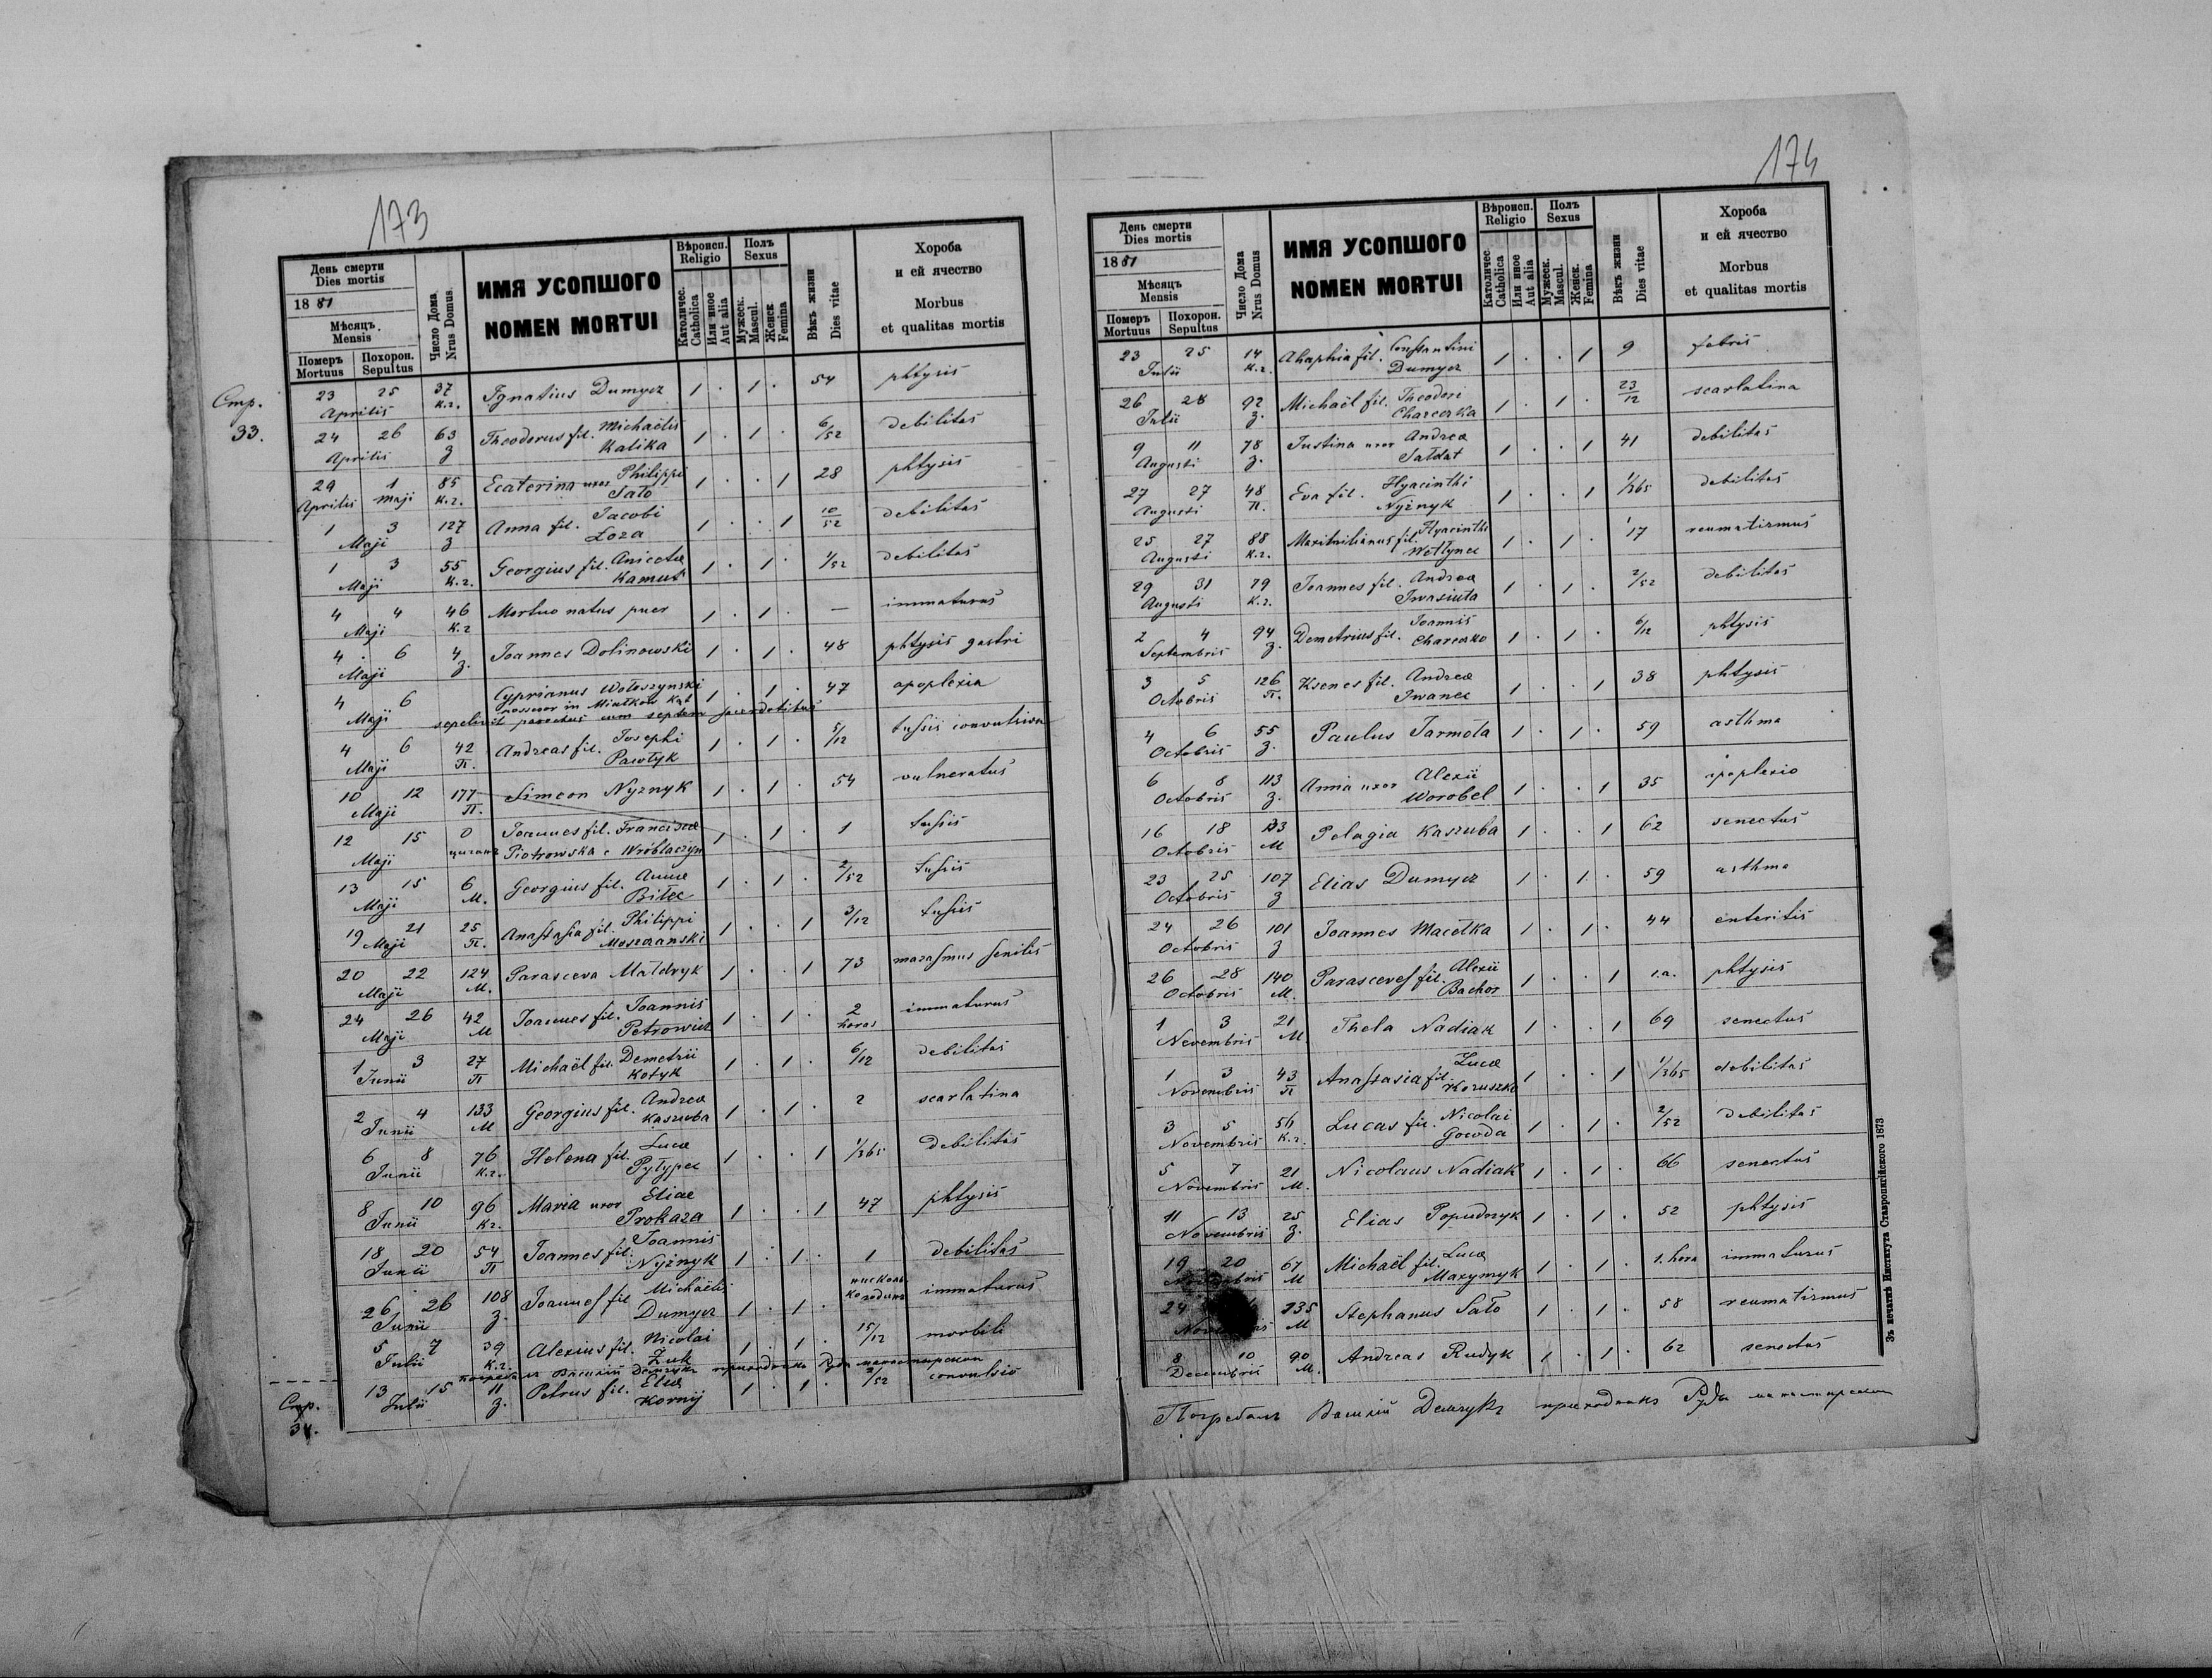 173
День смерти
Dies mortis
1881
Мѣсяць
Mensis
Померъ
Mortuus
Похорон.
Sepultus
Число Дома
Nrus Domus
ИМЯ УСОПШОГО
NOMEN MORTUI
Вѣроисп.
Religio
Католичес.
Catholica
Или иное
Aut alia
Полъ
Sexus
Мужеск.
Mascul.
Женск
Femina
Вѣкъ жизни
Dies vitae
Хороба
и ей ячество
Morbus
et qualitas mortis
Стр.
33.
23 25 Aprilis 37 К.г. Ignatius Dumycz 1 . 1 . 54 phtysis
24 26 Aprilis 63 З Theodorus fil. Michaëlis Kalika 1 . 1 . 6/52 debilitas
29 Aprilis 1 Maji 85 К.г. Ecaterina uxor Philippi Sało 1 . . 1 28 phtysis
1 3 Maji 127 З Anna fil. Jacobi Loza 1 . . 1 10/52 debilitas
1 3 Maji 55 К.г. Georgius fil. Anicetæ Kamut 1 . 1 . 1/52 debilitas
4 4 Maji 46 К.г Mortuo natus puer 1 . 1 . — immaturus
4 6 Maji 4 З. Joannes Dolinowski 1 . 1 . 48 phtysis gastri
4 6 Maji Cyprianus Wołoszynski 1 . 1 . 47 apoplexia
possesor in
sepelivit parochus cum septem sacerdotibus
4 6 Maji 42 П. Andreas fil. Josephi Pawłyk 1 . 1 . 5/12 tussis convulsiva
10 12 Maji 177 П. Simeon Nyznyk 1 . 1 . 54 vulneratus
12 15 Maji 0 Joannes fil. Francisca Piotrowska 1 . 1 . 1 tussis
13 15 Maji 6 М. Georgius fil. Annæ Biłec 1 . 1 . 2/52 tussis
19 21 Maji 25 П. Anastasia fil. Philippi Moszczanski 1 . . 1 3/12 tussis
20 22 Maji 124 М. Parasceva Małdryk 1 . . 1 73 marasmus senilis
24 26 Maji 42 М Joannes fil. Joannis Petrowicz 1 . 1 . 2 horas immaturus
1 3 Junii 27 П Michaël fil. Demetrii Kotyk 1 . 1 . 6/12 debilitas
2 4 Junii 133 М Georgius fil. Andreæ Kaszuba 1 . 1 . 2 scarlatina
6 8 Junii 76 К.г. Helena fil. Lucæ Pyłypec 1 . . 1 1/365 debilitas
8 10 Junii 96 К.г. Maria uxor Eliae Prokaza 1 . . 1 47 phtysis
18 20 Junii 54 П Joannes fil. Joannis Nyżnyk 1 . 1 . 1 debilitas
26 26 Junii 108 З. Joannes fil Michaëlis Dumycz 1 . 1 . immaturus
5 7 Julii 39 К.г. Alexius fil. Nicolai Żuk 1 . 1 . 15/12 morbili
13 15 Julii 11 З. Petrus fil. Eliæ Kornij 1 . 1 . 2/52 convulsio
Стр.
34.
174
День смерти
Dies mortis
1881
Мѣсяцъ
Mensis
Померъ
Mortuus
Похорон.
Sepultus
Число Дома
Nrus Domus
ИМЯ УСОПШОГО
NOMEN MORTUI
Вѣроисп.
Religio
Католичес.
Catholica
Или иное
Aut alia
Полъ
Sexus
Мужеск.
Mascul.
Женск.
Femina
Вѣкъ жизни
Dies vitae
Хороба
и ей ячество
Morbus
et qualitas mortis
23 25 Julii 14 К.г. Ahaphia fil. Constantini Dumycz 1 . . 1 9 febris
26 28 Julii 92 З. Michaël fil. Theodori Charczka 1 . 1 . 23/12 scarlatina
9 11 Augusti 78 З. Justina uxor Andreæ Sałdat 1 . . 1 41 debilitas
27 27 Augusti 48 П. Eva fil. Hyacinthi Nyżnyk 1 . . 1 1/365 debilitas
25 27 Augusti 88 К.г. Maximilianus fil. Hyacinthi Wołłynec 1 . 1 . 17 reumatizmus
29 31 Augusti 79 К.г. Joannes fil. Andreæ Iwasiuta 1 . 1 . 2/52 debilitas
2 4 Septembris 94 З. Demetrius fil. Joannis Charczko 1 . 1 . 6/12 phtysis
3 5 Octobris 126 П. Ksenes fil. Andreæ Iwanec 1 . . 1 38 phtysis
4 6 Octobris 55 З. Paulus Jarmoła 1 . 1 . 59 asthma
6 8 Octobris 113 З. Anna uxor Alexii Worobel 1 . . 1 35 apoplexio
16 18 Octobris М Pelagia Kaszuba 1 . . 1 62 senectus
23 25 Octobris 107 З Elias Dumycz 1 . 1 . 59 asthma
24 26 Octobris 101 З Joannes Macełka 1 . 1 . 44 enteritis
26 28 Octobris 140 М. Parasceves fil. Alexii Bachor 1 . . 1 1.a. phtysis
1 3 Novembris 21 М. Thela Nadiak 1 . . 1 69 senectus
1 3 Novembris 43 П Anastasia fil. Lucæ Koruszka 1 . . 1 1/365 debilitas
3 5 Novembris 56 К.г. Lucas fil. Nicolai Gowda 1 . 1 . 2/52 debilitas
5 7 Novembris 21 М. Nicolaus Nadiak 1 . 1 . 66 senectus
11 13 Novembris 25 З. Elias Popudnyk 1 . 1 . 52 phtysis
19 20 67 М Michaël fil. Lucæ Maxymyk 1 . 1 . 1. hora immaturus
24 135 М Stephanus Sało 1 . 1 . 58 reumatizmus
8 10 Decembris 90 М. Andreas Rudyk 1 . 1 . 62 senectus
Погребалъ Василій приходникъ Руды
Зъ печатнѣ Института Ставропигійского 1873